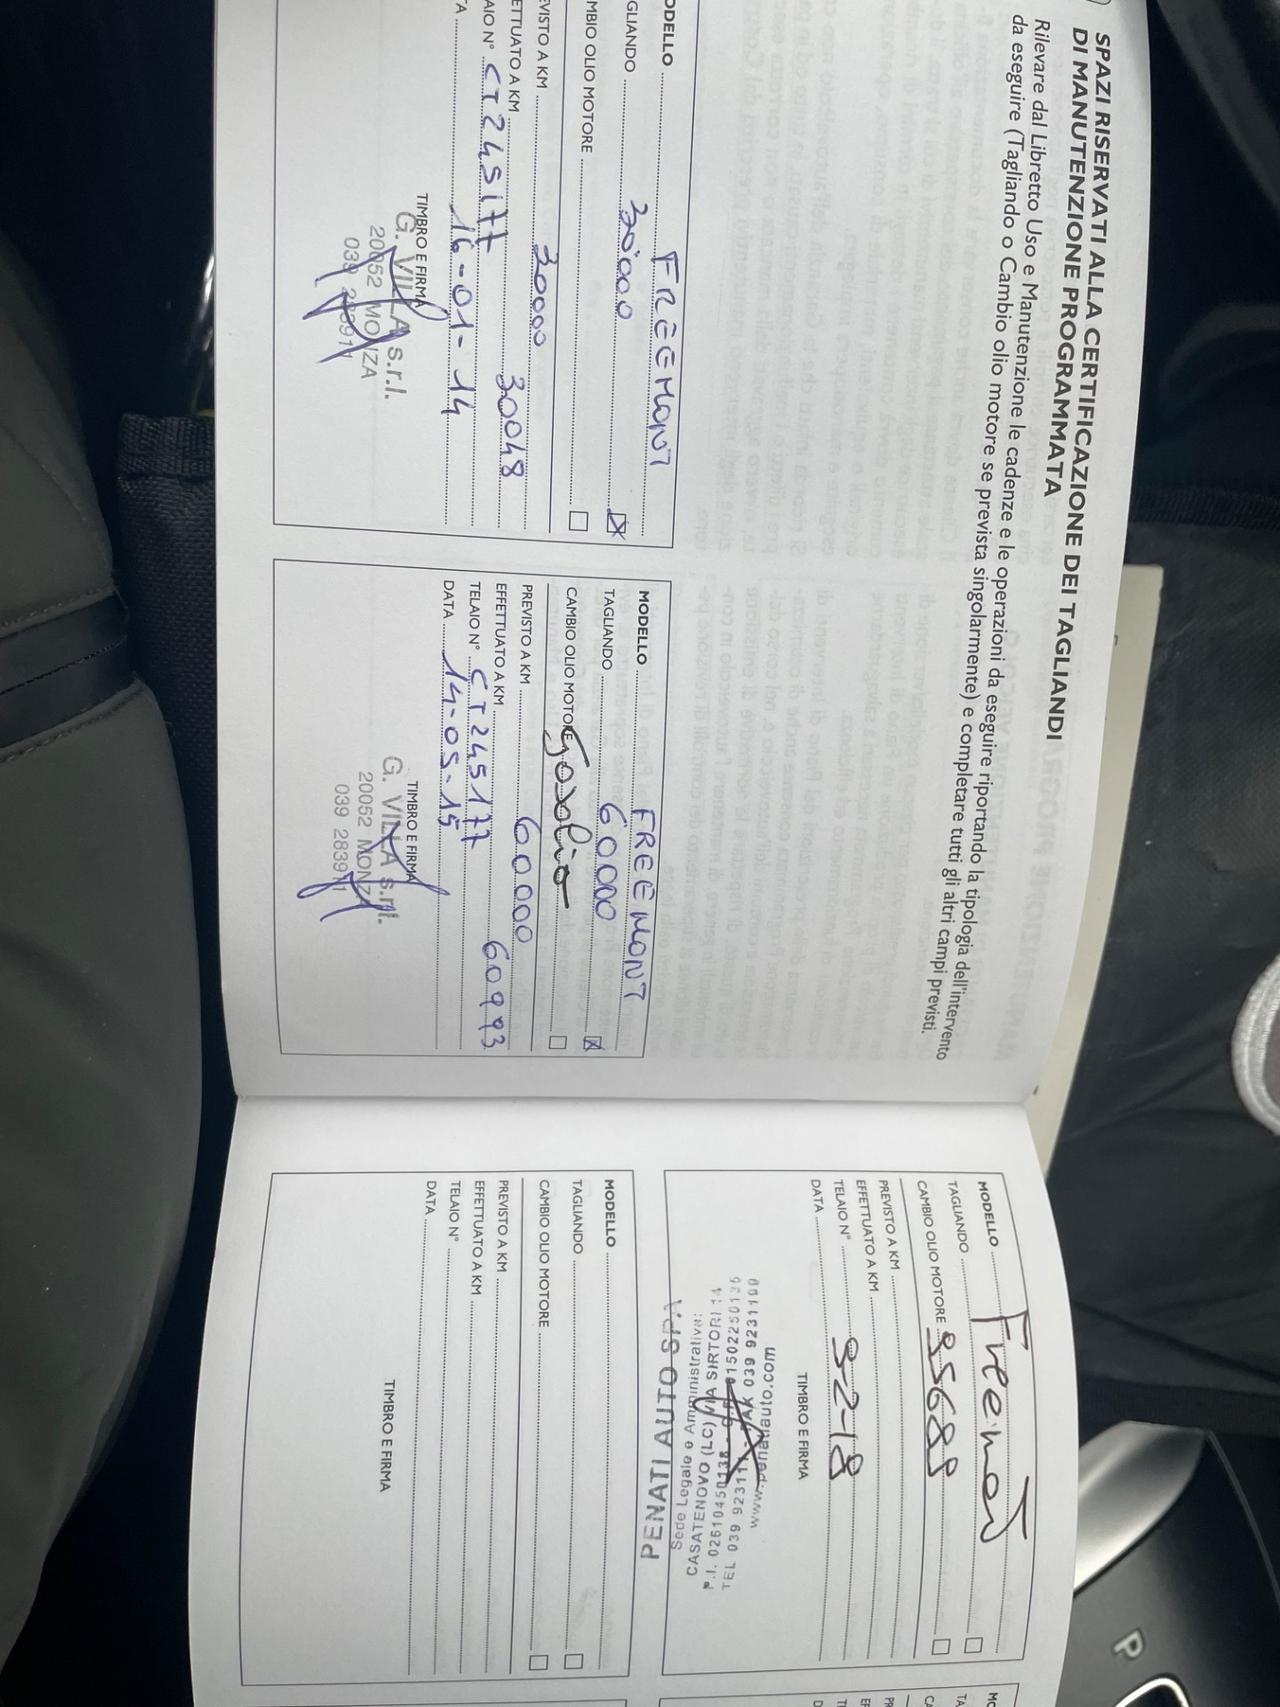 SPAZI RISERVATI ALLA CERTIFICAZIONE DEI TAGLIANDI
DI MANUTENZIONE PROGRAMMATA
Rilevare dal Libretto Uso e Manutenzione le cadenze e le operazioni da eseguire riportando la tipologia dell'intervento
da eseguire (Tagliando o Cambio olio motore se prevista singolarmente) e completare tutti gli altri campi previsti.
ODELLO FREEMONT
GLIANDO 30'000
MBIO OLIO MOTORE
EVISTO A KM 30000
ETTUATO A KM 30048
AIO N° CT245177
TA 16-01-14
TIMBRO E FIRMA
G. VILLA s.r.l.
20052 MONZA
039 283911
MODELLO FREEMONT
TAGLIANDO 60000
CAMBIO OLIO MOTORE Gasolio
PREVISTO A KM 60000
EFFETTUATO A KM 60993
TELAIO N° CT245177
DATA 14-05-15
TIMBRO E FIRMA
G. VILLA s.r.l.
20052 MONZA
039 283911
MODELLO Freemont
TAGLIANDO
CAMBIO OLIO MOTORE 95688
PREVISTO A KM
EFFETTUATO A KM
TELAIO N° 9-2-18
DATA
TIMBRO E FIRMA
PENATI AUTO SPA
Sede Legale e Amministrativa:
CASATENOVO (LC) VIA SIRTORI 14
TEL 039 9231 FAX 039 9231199
www.penatiauto.com
MODELLO
TAGLIANDO
CAMBIO OLIO MOTORE
PREVISTO A KM
EFFETTUATO A KM
TELAIO N°
DATA
TIMBRO E FIRMA
MO
TA
CA
PR
EF
TE
D
P